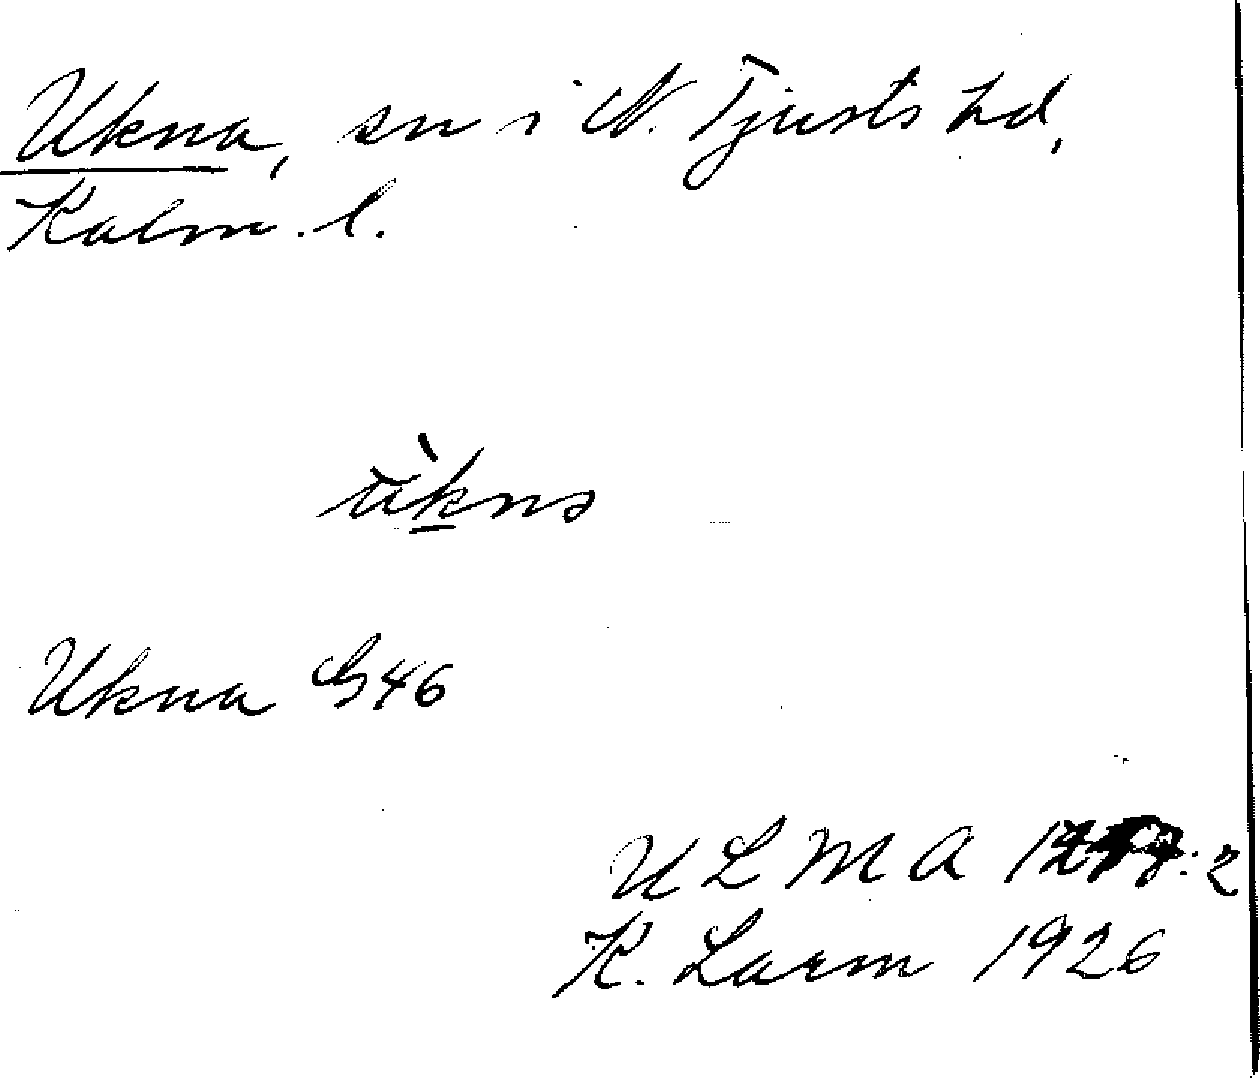 Ukna, sn i N. Tjusts hd,
Kalm. l.
ùknə
Ukna G46
ULMA :2
K. Larm 1926